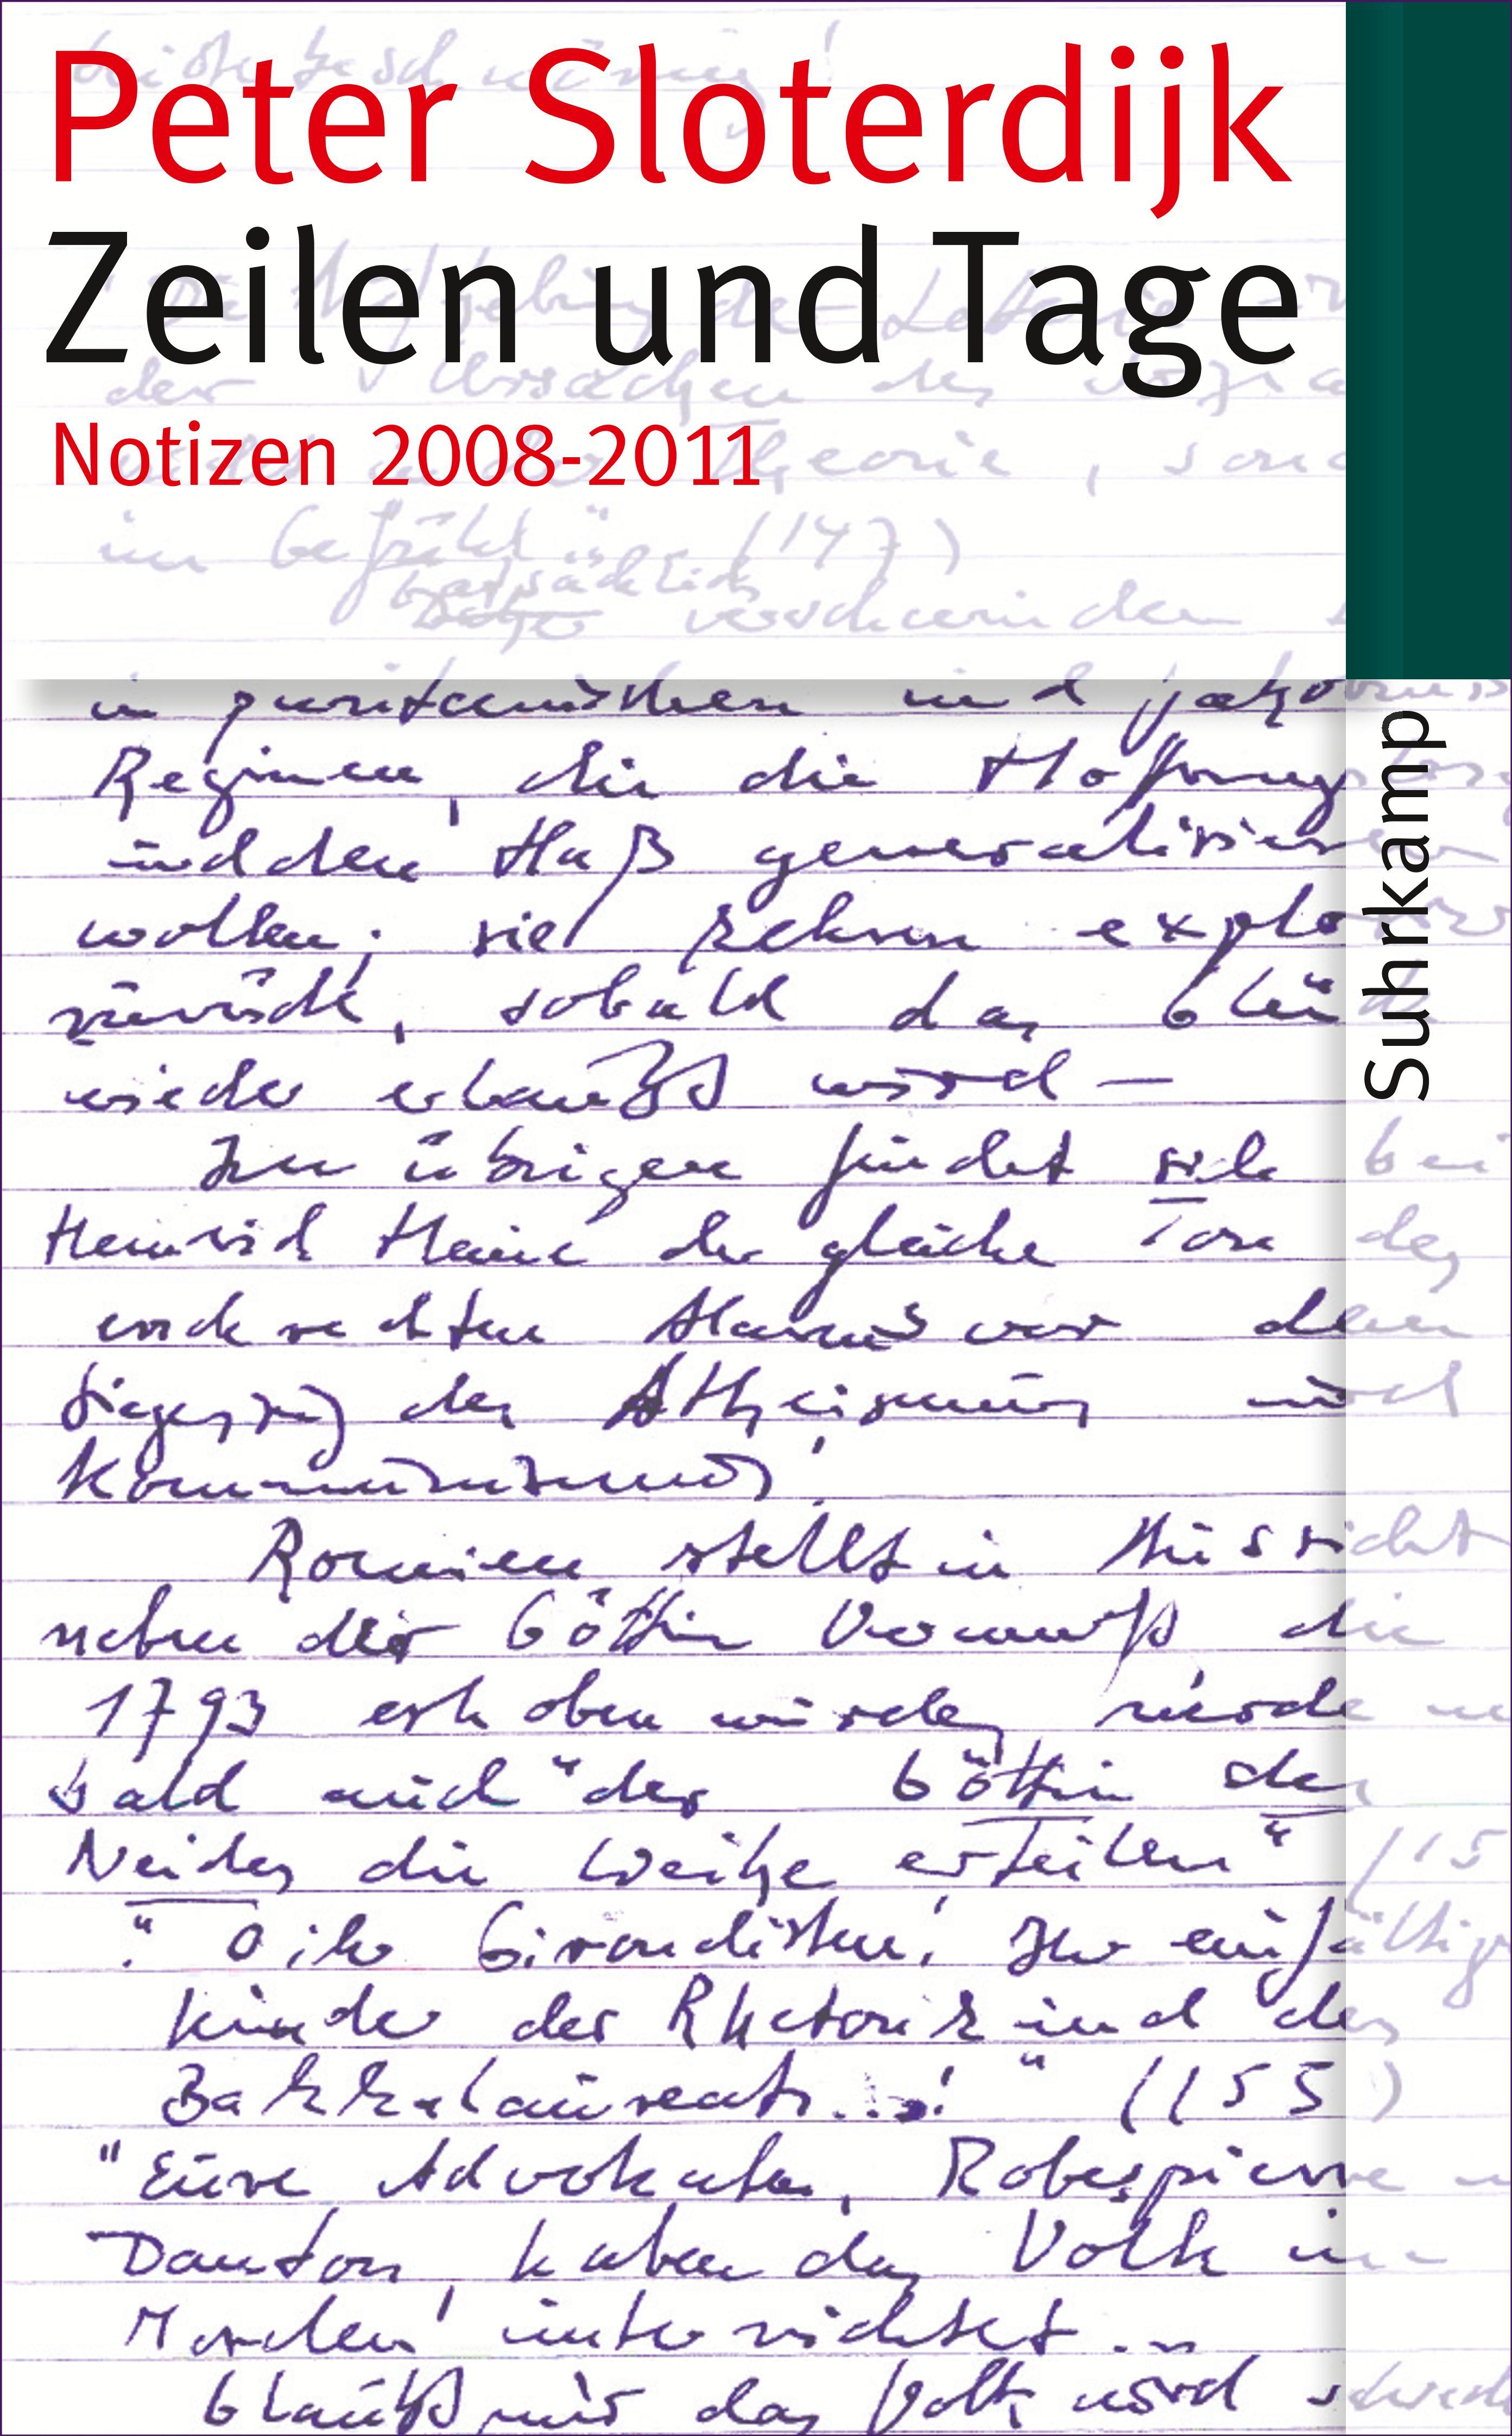 Peter Sloterdijk
Zeilen und Tage
Notizen 2008-2011
der Ursachen des
Theorie,
im Gefühl" (147)
tatsächlich
verschwinden
in puritanischen und
Regimen, die die Hoffnungslosi
und den Haß generalisieren
wollen; sie kehren
zurück, sobald das
wieder erlaubt wird —
Im übrigen findet sich bei
Heinrich Heine der gleiche Ton des
echten Alarms vor dem
Siegeszug des Atheismus und
Kommunismus.
Romieu stellt in Aussicht
neben der Göttin Vernunft, die
1793 erhoben wurde, würde
bald auch "der Göttin des
Neides die Weihe erteilen" (15
": O ihr Girondisten, Ihr einfältig
Kinder der Rhetorik und des
Bakkalaureats...!" (155)
"Eure Advokaten, Robespierre
Danton, haben das Volk im
Morden unterrichtet...
Glaubt mir das Volk wird
Suhrkamp